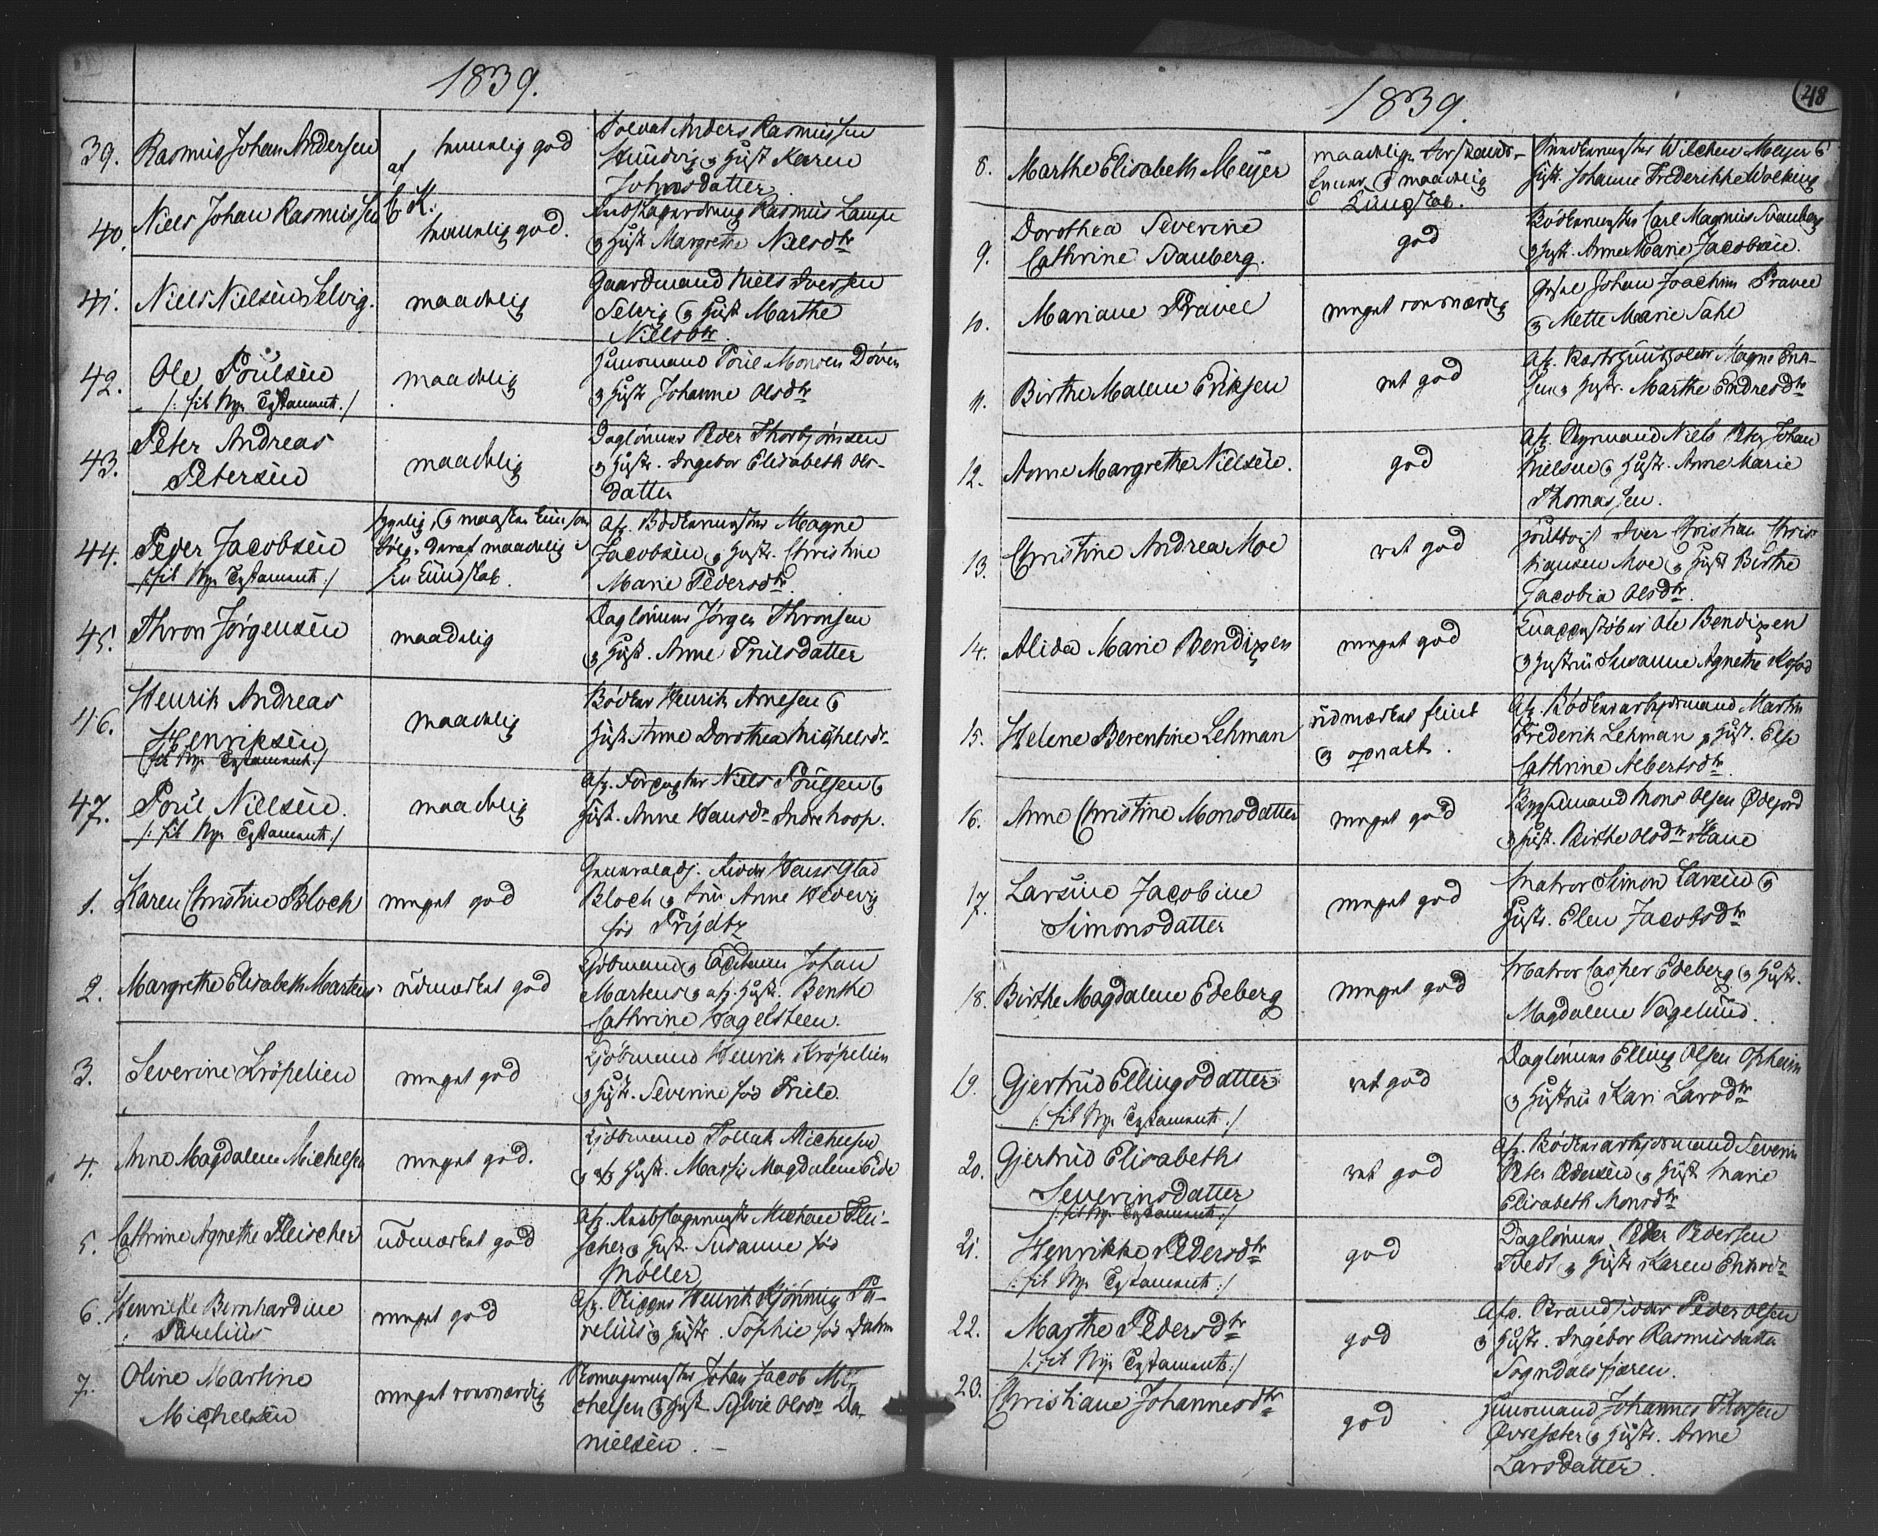 1839.
39. Rasmus Johan Andersen
af
temmelig god
Soldat Anders Rasmussen
Hundvig & Hust. Karen
Johnsdatter
40. Niels Johan Rasmussen
C. K.
temmelig god.
Rasmus Lampe
& Hust. Margrethe Nielsdtr
41. Niels Nielsen Selvig.
maadelig
Gaardmand Niels Iversen
Selvig & Hust. Marthe
Nielsdtr.
42. Ole Poulsen
/: fik Nye Testament :/
maadelig
Huusmand Poul Monsen
& Hustr. Johanne Olsdtr
43. Peter Andreas
Petersen
maadelig
Daglønner Peder Thorbjørnsen
& Hustr. Ingebor Elisabeth Ols-
datter
44. Peder Jacobsen
/: fik Nye Testament :/
maadelig
Kundskab.
Afg. Bødkermester Magne
Jacobsen & Hustr. Christine
Marie Pedersdtr.
45. Thron Jørgensen
maadelig
Daglønner Jørgen Thronsen
& Hust. Anne Trulsdatter
46. Henrik Andreas
Henriksen
/: fik Nye Testament :/
maadelig
Bødker Henrik Arnesen &
Hust. Anne Dorothea Michelsdr.
47. Poul Nielsen.
/: fik Nye Testament :/
maadelig
Afg. Niels Poulsen &
Hust. Anne Hansdr. Indrehoop.
1. Karen Christine Bloch
meget god
Generaladj. Ridder Hans Glad
Bloch & Frue Anne Hedevig
fød Frydtz
2. Margrethe Elisabeth Martens
udmærket god
Kjøbmand & Capitain Johan
Martens & afg. Hustr. Benthe
Cathrine Hagelsteen.
3. Severine Krøpelien
meget god
Kjøbmand Henrik Krøpelien
& Hustr. Severine fød Friele.
4. Anne Magdalene Michelsen
meget god.
Kjøbmand Tollak Michelsen
& afg. Hustr. Massi Magdalene Eide
5. Cathrine Agnethe Fleischer
udmærket god
Afg. Rebslagermester Michael Flei-
scher & Hust. Susanne fød
Møller
6. Henriette Bernhardine
Parelius
meget god
Afg. Henrik Kjønnig Pa-
relius & Hustr. Sophie fød Dahm
7. Oline Martine
Michelsen
meget roesværdig
Skomagermester Johan Jacob Mi-
chelsen & Hust. Sylvie Olsdr. Da-
nielsen.
48
1839.
8. Marthe Elisabeth Meyer
maadelige Forstands-
Evner & maadelig
Kundskab.
Snedkermester Wilchen Meyer &
Hust. Johanne Frederikke Wolking
9. Dorothea Severine
Cathrine Svanberg.
god
Bødkermester Carl Magnus Svanberg
& Hust. Anne Marie Jacobsen.
10. Mariane Pravel
meget roesværdig
Johan Joachim Pravel
& Mette Marie Sahl
11. Birthe Malene Eriksen
ret god
Afg. Magne Erik-
sen & Hustr. Marthe Endresdtr
12. Anne Margrethe Nielsen.
god
Afg. Niels Peter Johan
Nielsen & Hustr. Anne Marie
Thomassen.
13. Christine Andrea Moe
ret god
Iver Christian Chris-
tiansen Moe & Hust. Birthe
Jacobia Olsdtr.
14. Alida Marie Bendixen
meget god
Knappestøber Ole Bendixen
& Hustrue Susanne Agnethe
15. Helene Berentine Lehman
udmærket flink
& opvakt.
Afg. Bødkerarbejdsmand Martin
Frederik Lehman & Hust. Else
Cathrine Albertsdtr.
16. Anne Christine Monsdatter
meget god
Bygdmand Mons Olsen
& Hust. Birthe Olsdtr
17. Larsine Jacobine
Simonsdatter
meget god
Matros Simon Larsen &
Hustr. Elen Jacobsdtr
18. Birthe Magdalene Edeberg
meget god
Matros Casper Edeberg & Hustr.
Magdalene Vagelund.
19. Gjertrud Ellingsdatter
/: fik Nye Testament :/
ret god
Daglønner Elling Olsen Opheim
& Hustrue Kari Larsdtr
20. Gjertrud Elisabeth
Severinsdatter
/: fik Nye Testament :/
ret god
Afg. Bødkerarbejdsmand Severin
Peter Pedersen & Hust. Marie
Elisabeth Monsdtr
21. Henrikke Pedersdtr
/: fik Nye Testament :/
god
Daglønner Peder Pedersen
Tvedt & Hustr. Karen Eriksdr
22. Marthe Pedersdtr
/: fik Nye Testament :/
god
Afg. Brandsvider Peder Olsen
& Hustr. Ingebor Rasmusdatter
Sogndalsfjæren.
23. Christiane Johannesdtr
god
Huusmand Johannes Thorsen
Øvresæter & Hustr. Anne
Larsdatter.